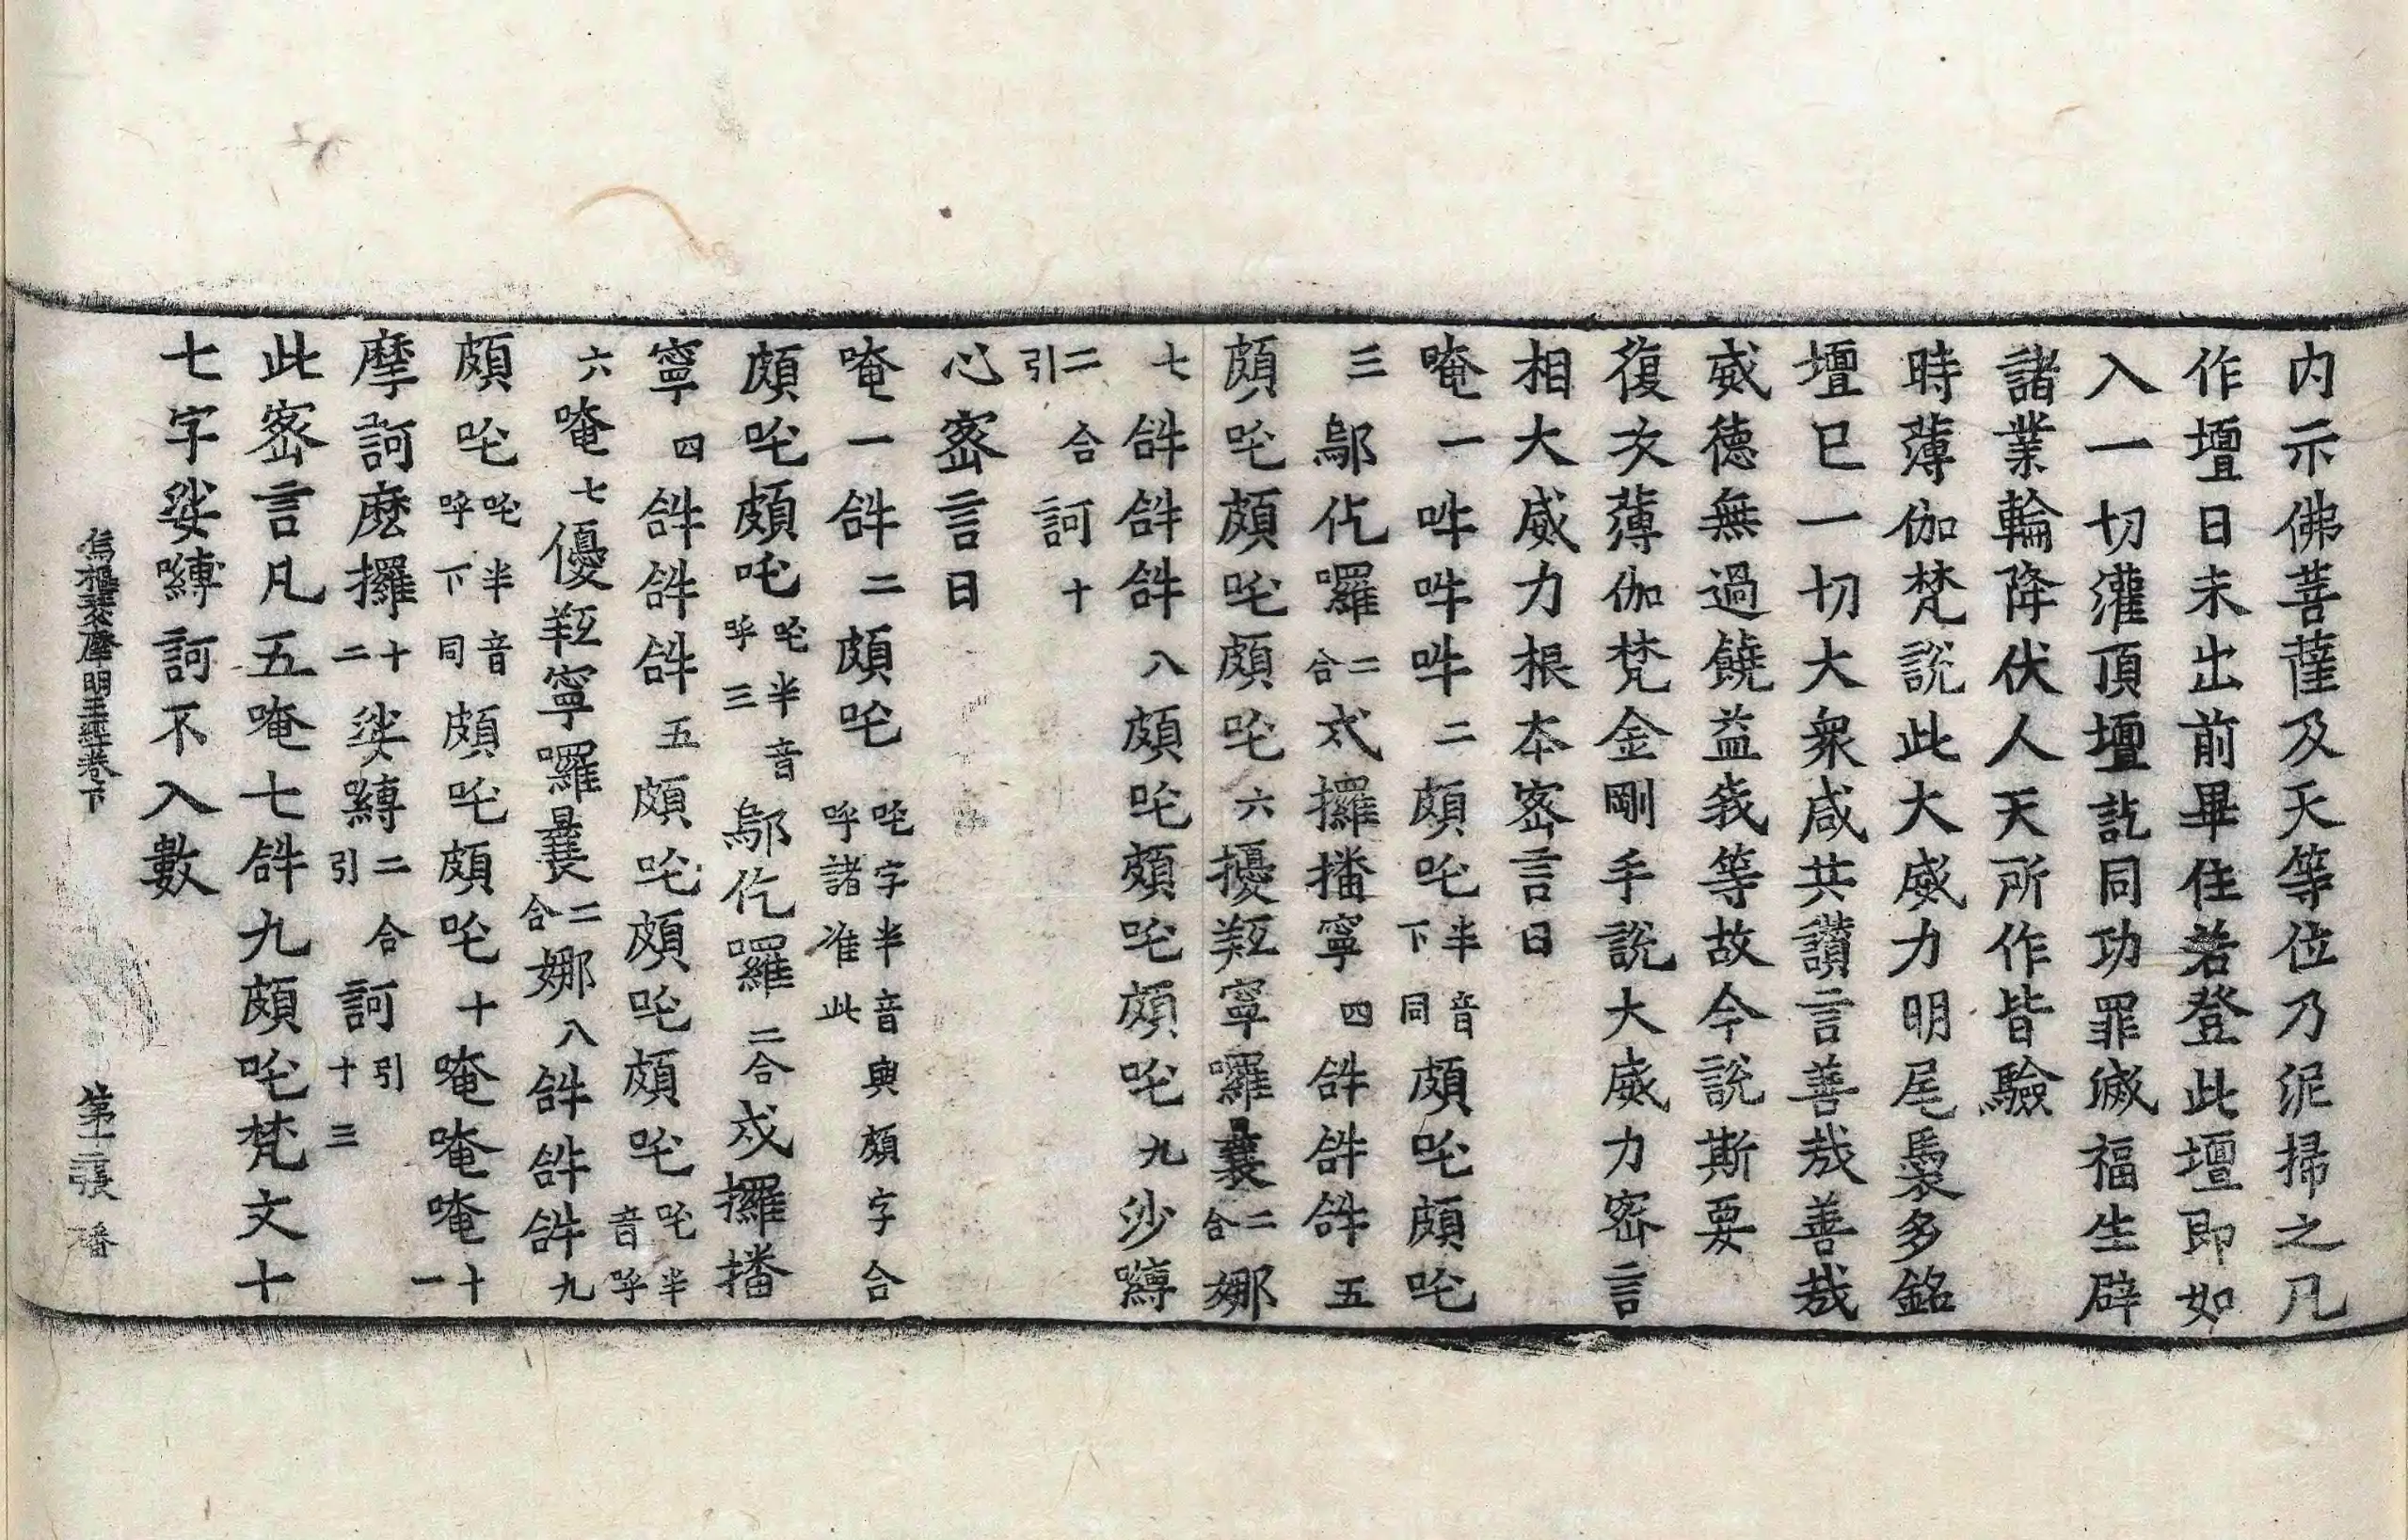 内示佛菩薩及天等位乃泥掃之凡
作壇日未出前畢住若登此壇即如
入一切灌頂壇訖同功罪滅福生辟
諸業輪降伏人天所作皆驗
時薄伽梵說此大威力明尾裊多銘
壇已一切大衆咸共讃言善哉善哉
威德無過饒益我等故今說斯要
復次薄伽梵金剛手說大威力宻言
相大威力根本宻言曰
唵一吽吽吽二頗吒半音下同頗吒頗吒
三鄔仡囉二合戍攞播寧四𤙖𤙖𤙖五
頗吒頗吒頗吒六擾羫寧囉曩二合娜
七𤙖𤙖𤙖八頗吒頗吒頗吒九沙嚩
二合引訶十
心宻言曰
唵一𤙖二頗吒吒字半音與頗字合呼諸准此
頗吒頗吒吒半音呼三鄔仡囉二合戍攞播
寧四𤙖𤙖𤙖五頗吒頗吒頗吒吒半音呼
六唵七優羫寧囉曩二合娜八𤙖𤙖𤙖九
頗吒吒半音呼下同頗吒頗吒十唵唵唵十一
摩訶麽攞十二娑嚩二合引訶引十三
此宻言凡五唵七𤙖九頗吒梵文十
七字娑嚩訶不入數
烏樞瑟摩明王經卷下 第二張 潘